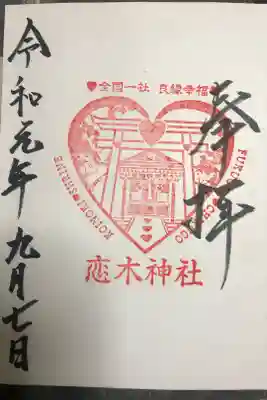 奉拝
♥全国一社 良縁幸福♥
KOINOKI★SHRINE
恋木神社
令和元年九月七日